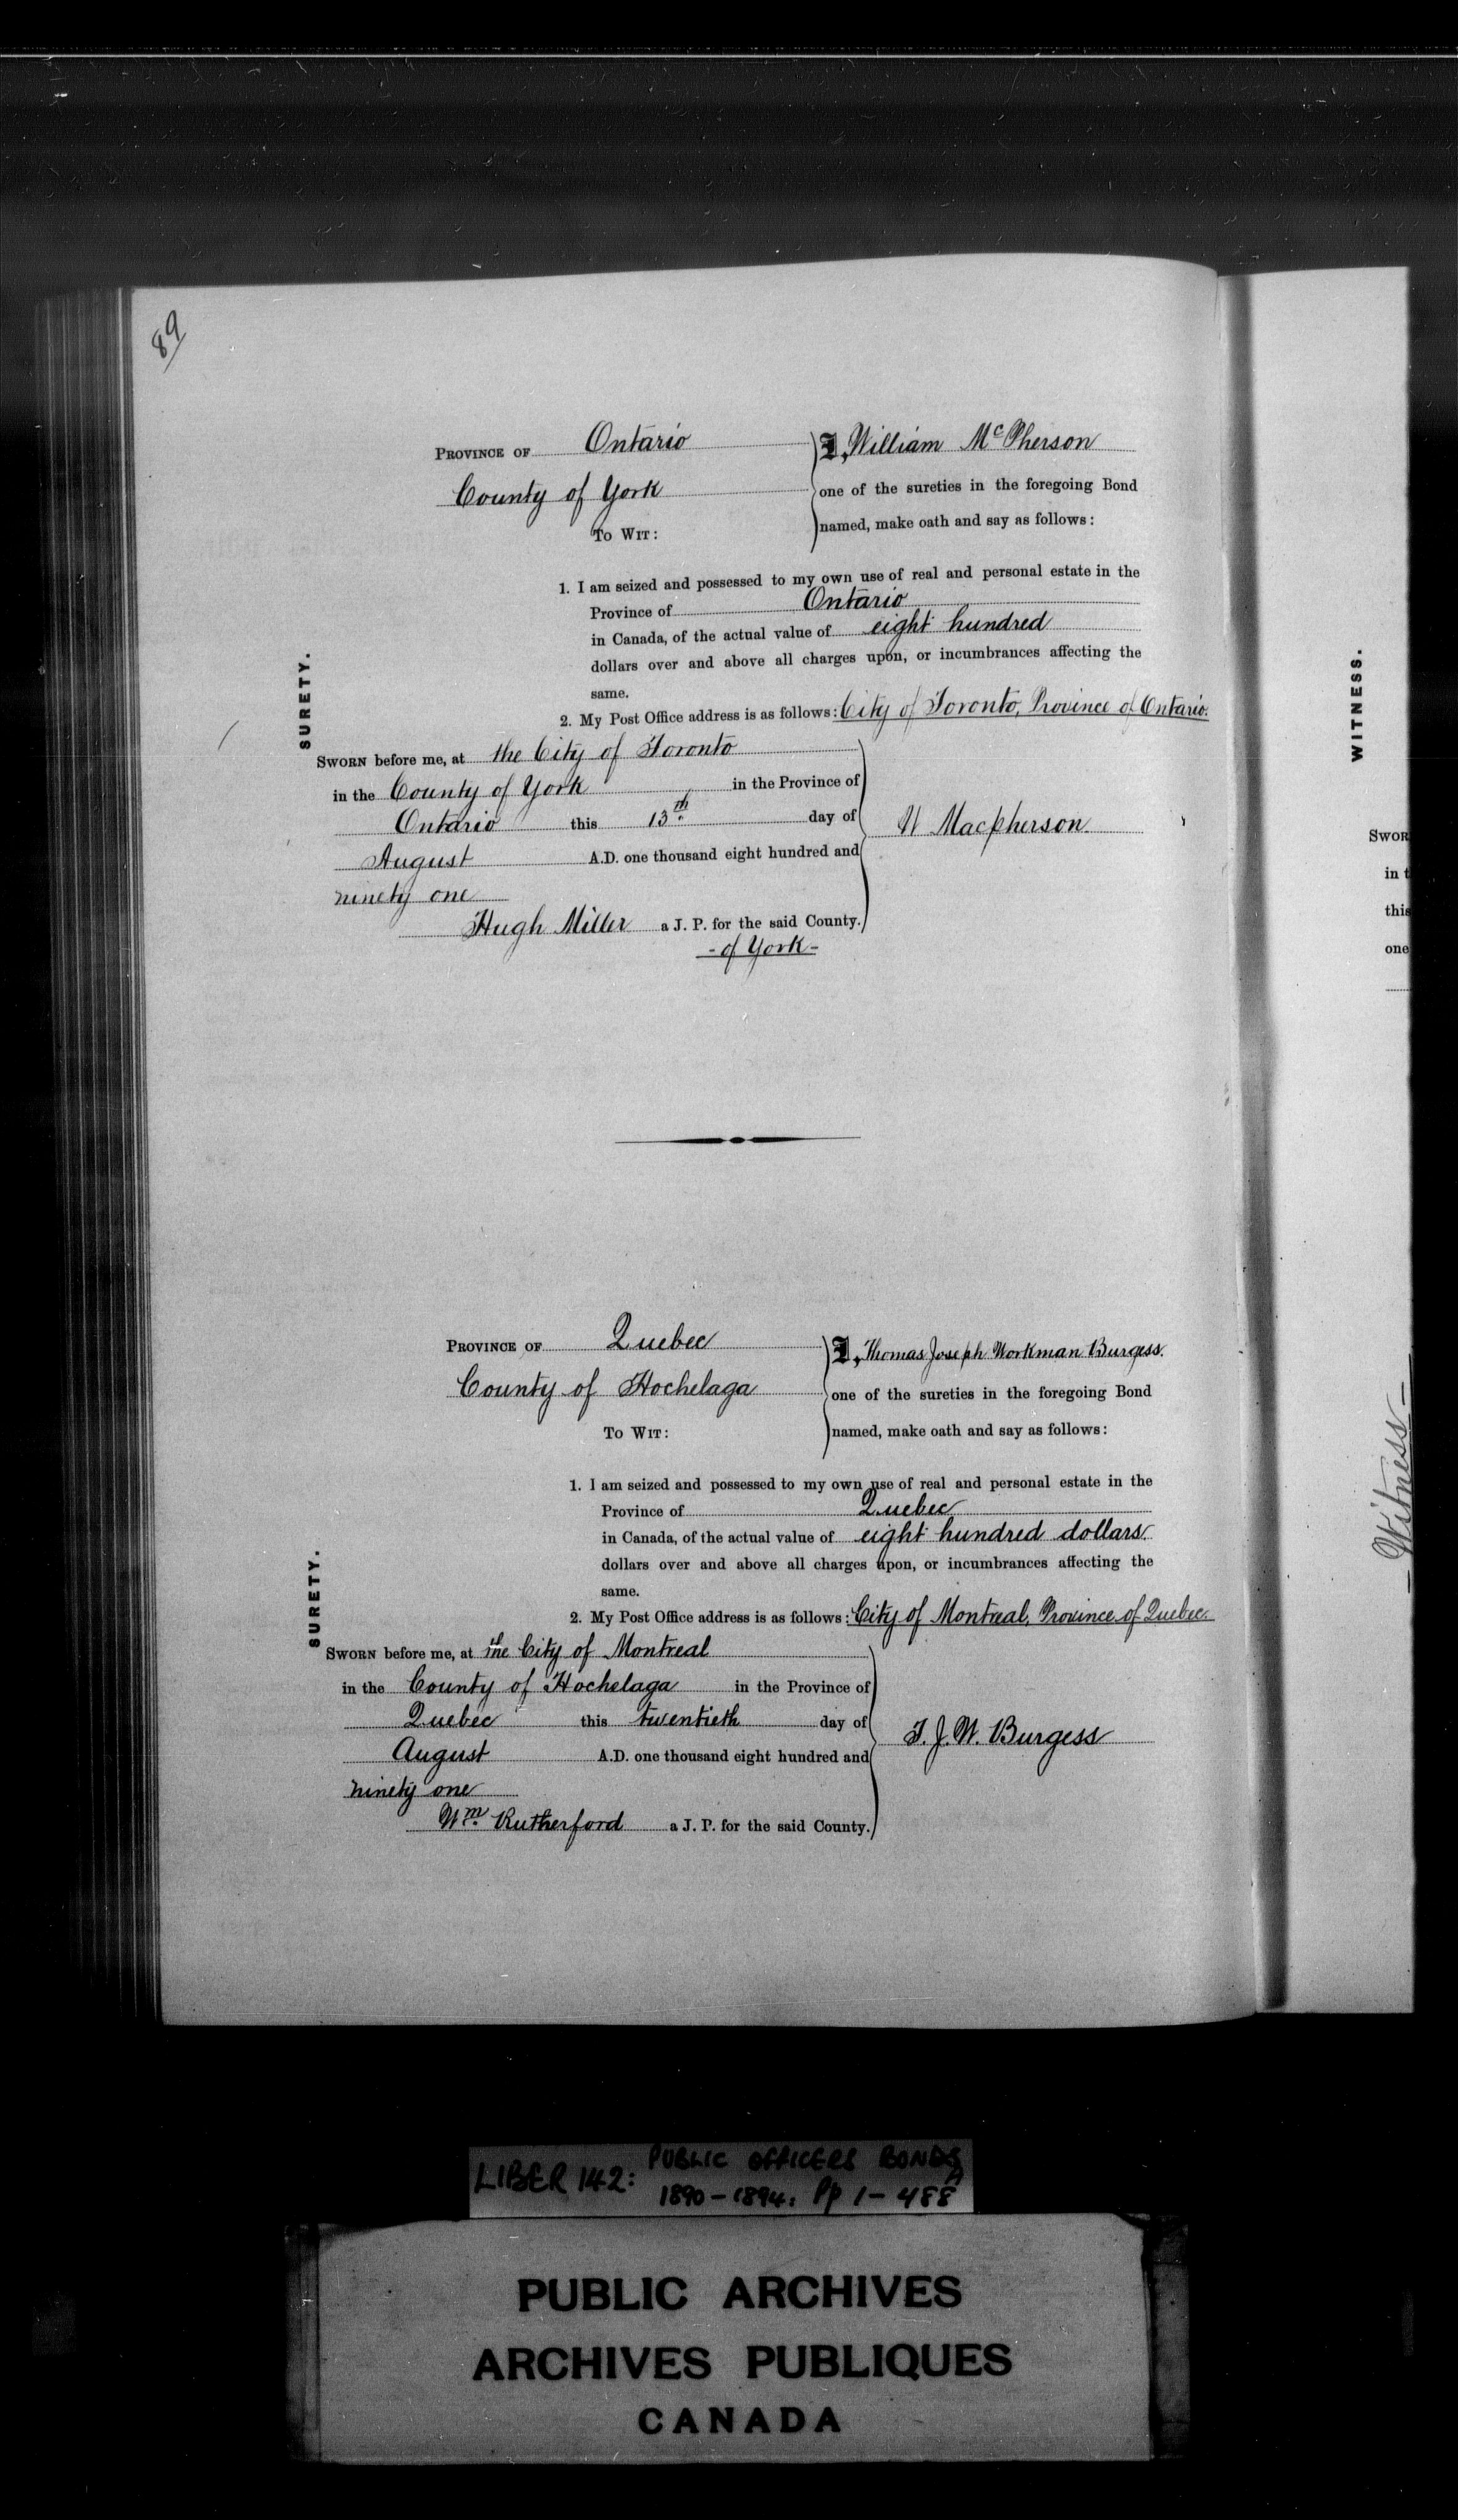 89
PROVINCE OF Ontario
County of York
TO WIT:
I, William McPherson
one of the sureties in the foregoing Bond
named, make oath and say as follows:
1. I am seized and possessed to my own use of real and personal estate in the
Province of Ontario
in Canada, of the actual value of eight hundred
dollars over and above all charges upon, or incumbrances affecting the
same.
2. My Post Office address is as follows: City of Toronto, Province of Ontario.
SURETY.
SWORN before me, at the City of Toronto
in the County of York in the Province of
Ontario this 13th day of
August A.D. one thousand eight hundred and
ninety one
Hugh Miller a J. P. for the said County.
- of York -
W Macpherson
PROVINCE OF Quebec
County of Hochelaga
TO WIT:
I, Thomas Joseph Workman Burgess.
one of the sureties in the foregoing Bond
named, make oath and say as follows:
1. I am seized and possessed to my own use of real and personal estate in the
Province of Quebec
in Canada, of the actual value of eight hundred dollars.
dollars over and above all charges upon, or incumbrances affecting the
same.
2. My Post Office address is as follows: City of Montreal, Province of Quebec.
SURETY.
SWORN before me, at the City of Montreal
in the County of Hochelaga in the Province of
Quebec this twentieth day of
August A.D. one thousand eight hundred and
ninety one
Wm. Rutherford a J. P. for the said County.
T. J. W. Burgess
WITNESS.
SWOR
in t
this
one
- Witness -
LIBER 142: PUBLIC OFFICERS BONDS
1890-1894. Pp 1-488A
PUBLIC ARCHIVES
ARCHIVES PUBLIQUES
CANADA